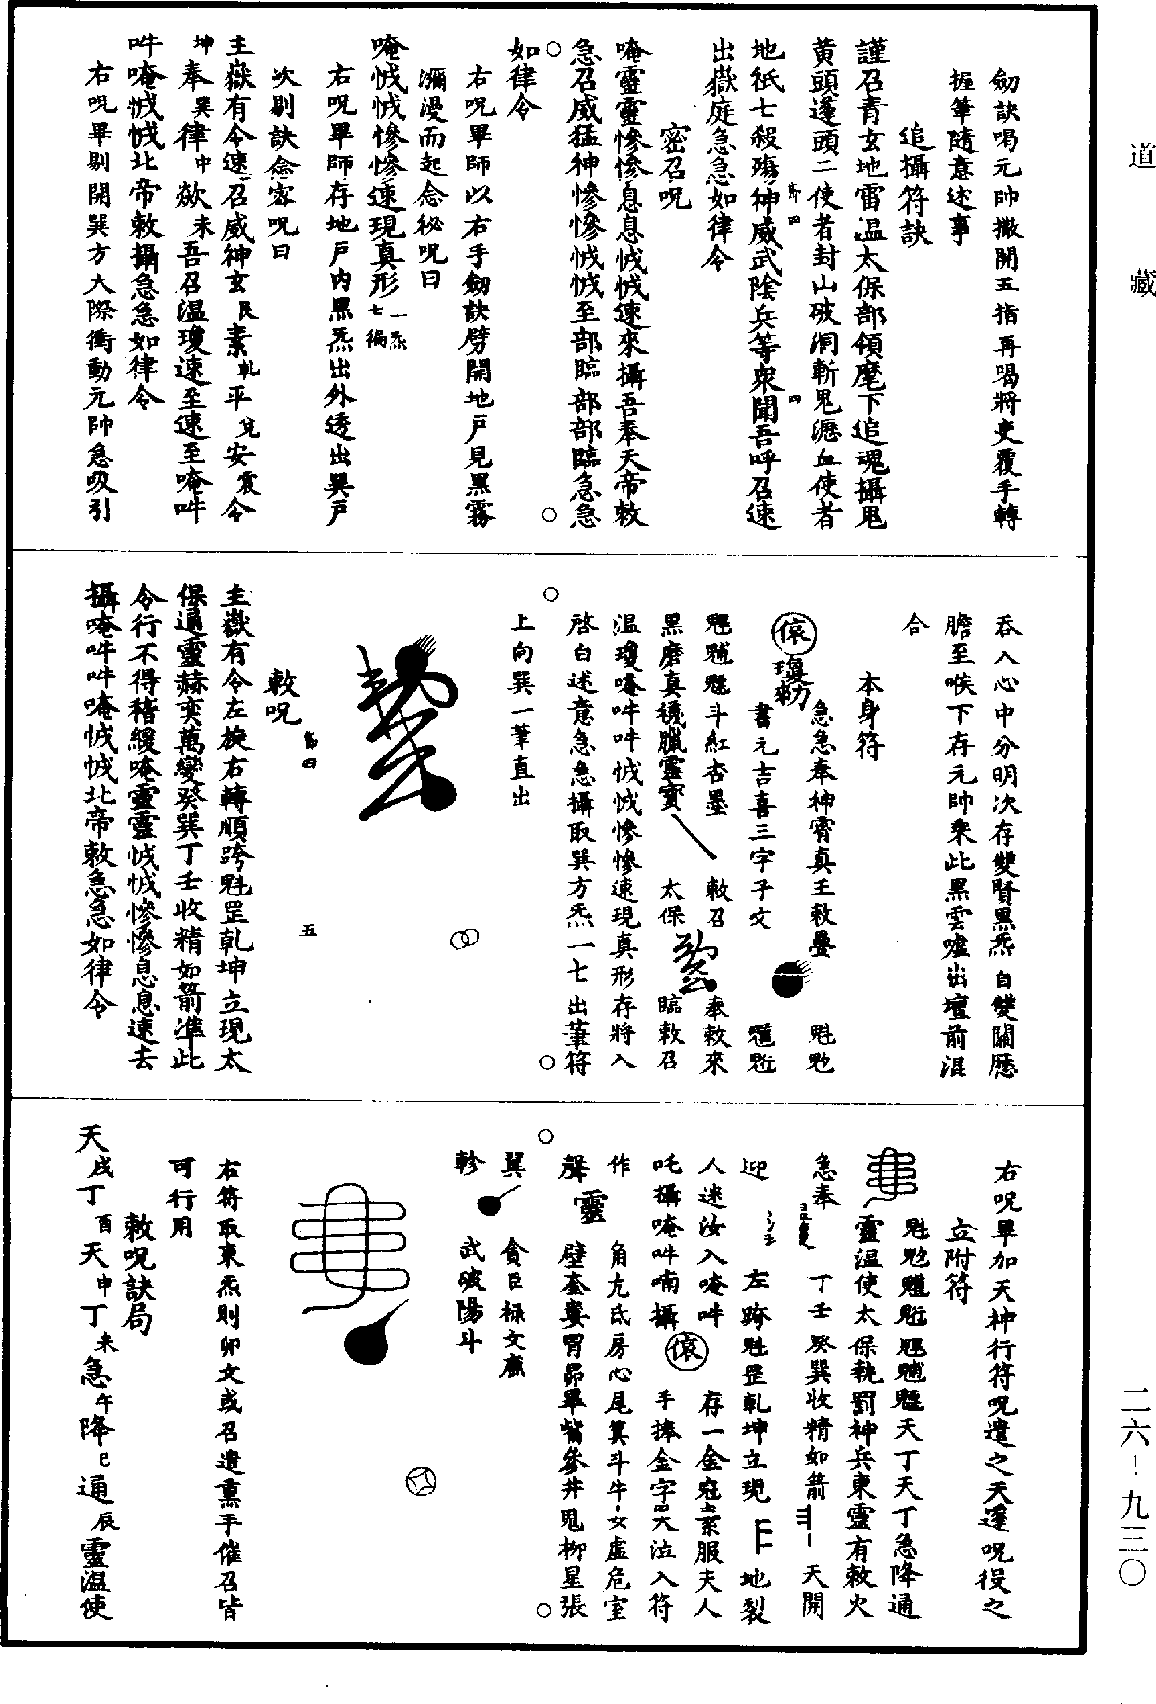 道藏
劒訣喝元帥撒開五指再喝將吏覆手轉
握筆隨意述事
追攝符訣
謹召青玄地雷温太保部領麾下追魂攝鬼
黄頭蓬頭二使者封山破洞斬鬼瀝血使者
地祇七殺殤神威武陰兵等衆聞吾呼召速
出嶽庭急急如律令
密召呪
唵靈靈慘慘息息㤜㤜速來攝吾奉天帝敕
急召威猛神慘慘㤜㤜至部臨部部臨急急
如律令
右呪畢師以右手劒訣劈開地戸見黑霧
瀰漫而起念秘呪曰
唵㤜㤜慘慘速現真形一炁七徧
右呪畢師存地戸内黑炁出外透出巽戸
次剔訣念密呪曰
主嶽有令速召威神玄艮素乾平兌安震令
坤奉巽律中欻未吾召温瓊速至速至唵吽
吽唵㤜㤜北帝敕攝急急如律令
右呪畢剔開巽方大際衝動元帥急吸引
吞入心中分明次存雙腎黑炁自雙關歷
膽至喉下存元帥乘此黑雲噓出壇前混
合
本身符
急急奉神霄真王敕疊
魁𩲃
書元吉喜三字子文
斗紅杏墨
敕召
奉敕來
黑磨真機臘靈寶
太保
臨敕召
温瓊唵吽吽㤜㤜慘慘速現真形存將入
啓白述意急急攝取巽方炁一七出筆符
上向巽一筆直出
敕呪
主嶽有令左旋右轉順跨魁罡乾坤立現太
保通靈赫奕萬變癸巽丁壬收精如箭準此
令行不得稽緩唵靈靈㤜㤜慘慘息息速去
攝唵吽吽唵㤜㤜北帝敕急急如律令
五
右呪畢加天神行符呪遣之天蓬呪役之
立附符
天丁天丁急降通
靈温使太保執罰神兵東靈有敕火
急奉
丁壬癸巽收精如箭
天開
迎
左跨魁罡乾坤立現
地裂
人迷汝入唵吽
存一金冠素服夫人
吒攝唵吽喃攝
手捧金字哭泣入符
作
角亢氐房心尾箕斗牛女虚危室
聲靈
壁奎婁胃昴畢觜參井鬼柳星張
翼
貪巨禄文廉
軫
武破陽斗
右符取東炁則卯文或召遣熏平催召皆
可行用
敕呪訣局
天戌丁酉天申丁未急午降巳通辰靈温使
二六－九三〇